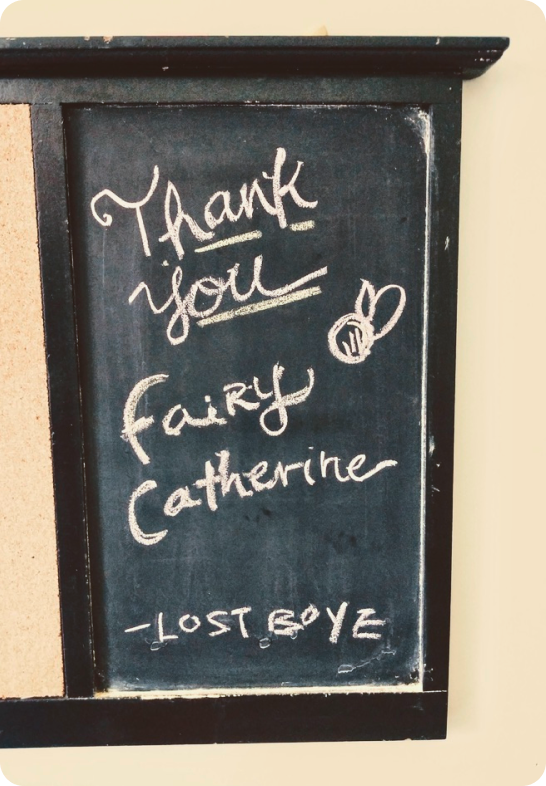 Thank
You
Fairy
Catherine
-LOST BOYE